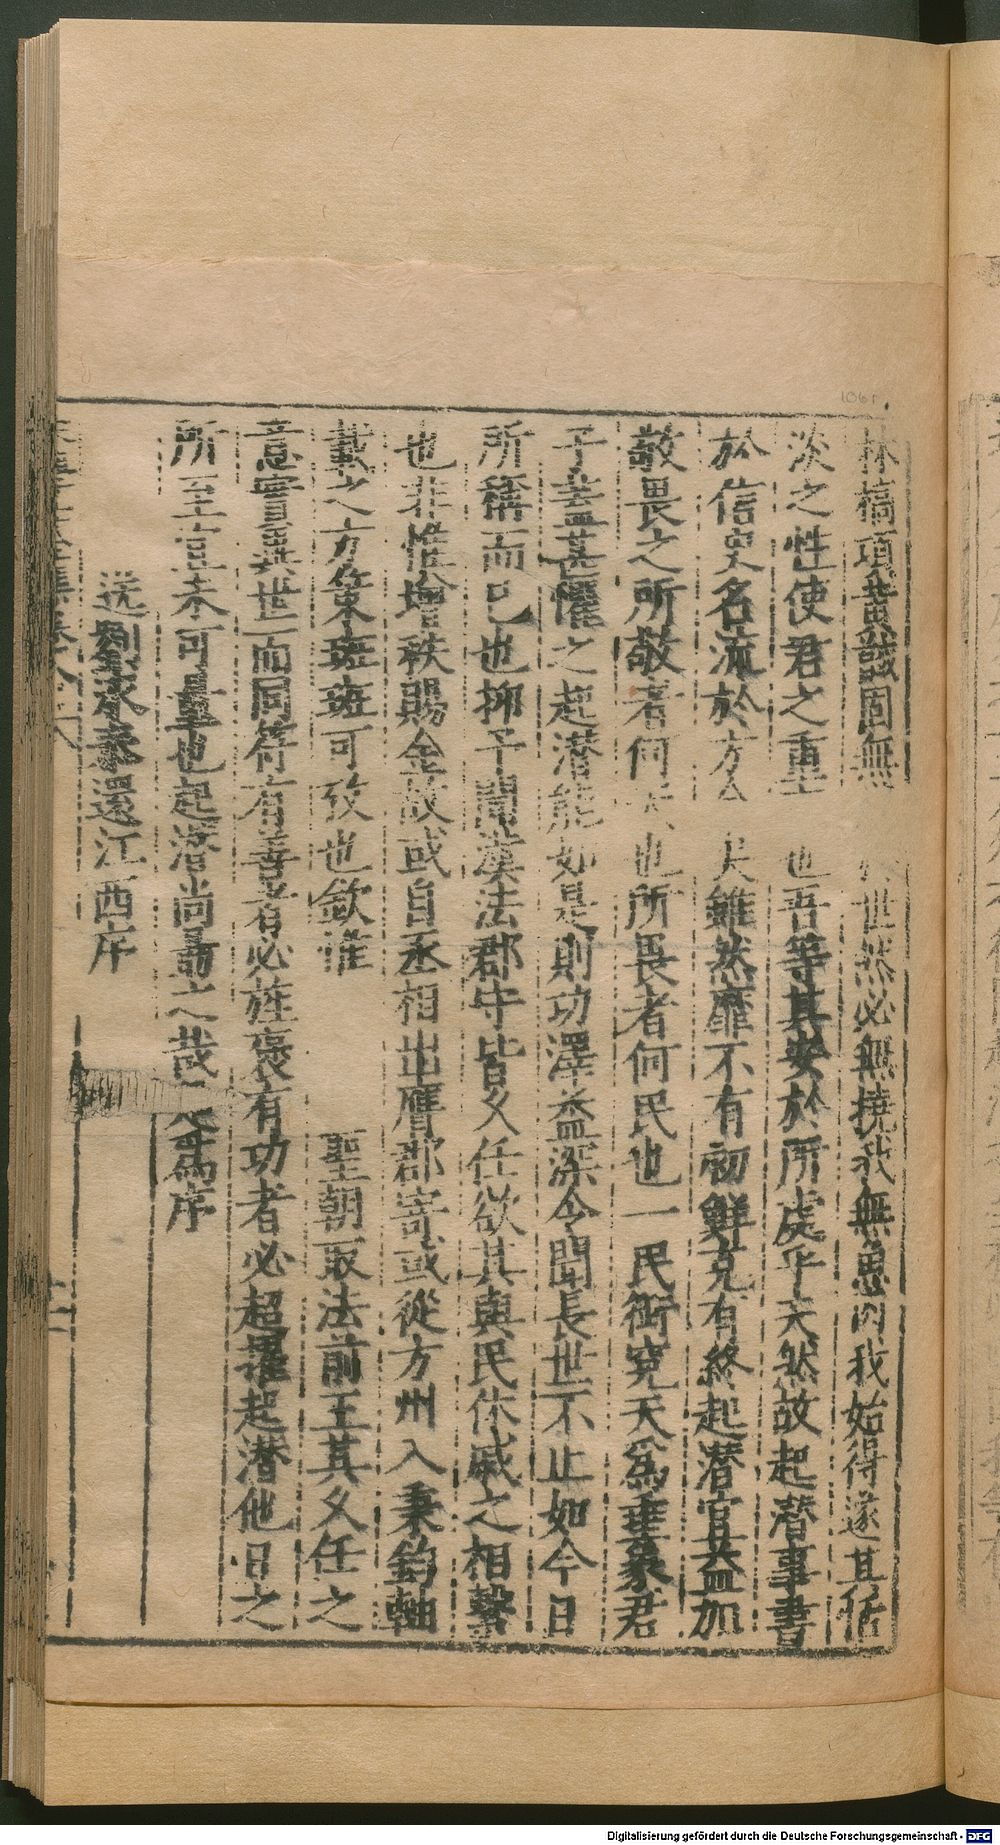 林槁項黃馘固無 世然必無撓我無魚肉我始得遂其恬
淡之性使君之重 也吾等其安於所處乎夫然故起潛事書
於信史名流於方 夫雖然靡不有初鮮克有終起潛宜益加
敬畏之所敬者何 也所畏者何民也一民銜寃天爲垂象君
子蓋甚懼之起潛能如是則功澤益深令聞長世不止如今日
所稱而已也抑予聞漢法郡守皆久任欲其與民休戚之相
也非惟增秩賜金故或自丞相出膺郡寄或從方州入秉鈞軸
載之方策班班可攷也欽惟 聖朝取法前王其久任之
意實異世而同符有善者必旌褒有功者必超擢起潛他日之
所至豈未可量也起潛尚勗之哉 爲序
送劉承奏還江西序
1061
Digitalisierung gefördert durch die Deutsche Forschungsgemeinschaft - DFG